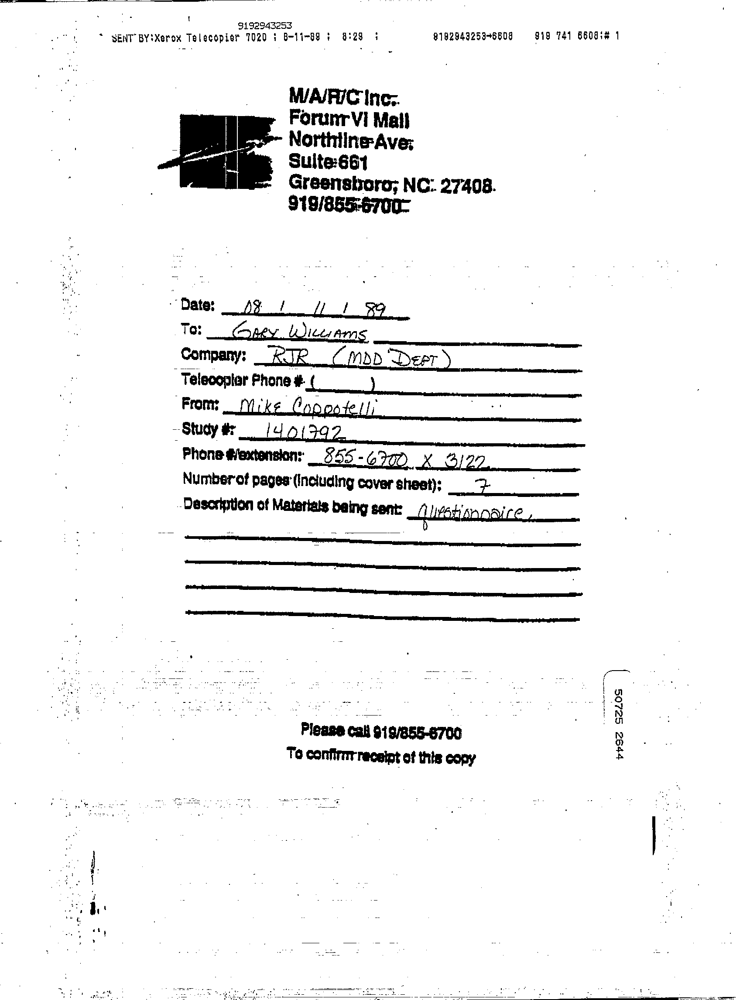 9192943253
SENT BY:Xerox Telecopier 7020 ; 8-11-89 ; 8:29 ; 9192943253→6608 919 741 6608;# 1
M/A/R/C Inc.
Forum VI Mall
Northline Ave.
Suite 661
Greensboro, NC. 27408
919/855-6700
Date: 08 / 11 / 89
To: GARY WILLIAMS
Company: RJR (MDD DEPT)
Telecopier Phone # ( )
From: Mike Coppotelli
Study #: 1401792
Phone #/extension: 855-6700 X 3122
Number of pages (including cover sheet): 7
Description of Materials being sent: questionnaire.
Please call 919/855-6700
To confirm receipt of this copy
50725 2644